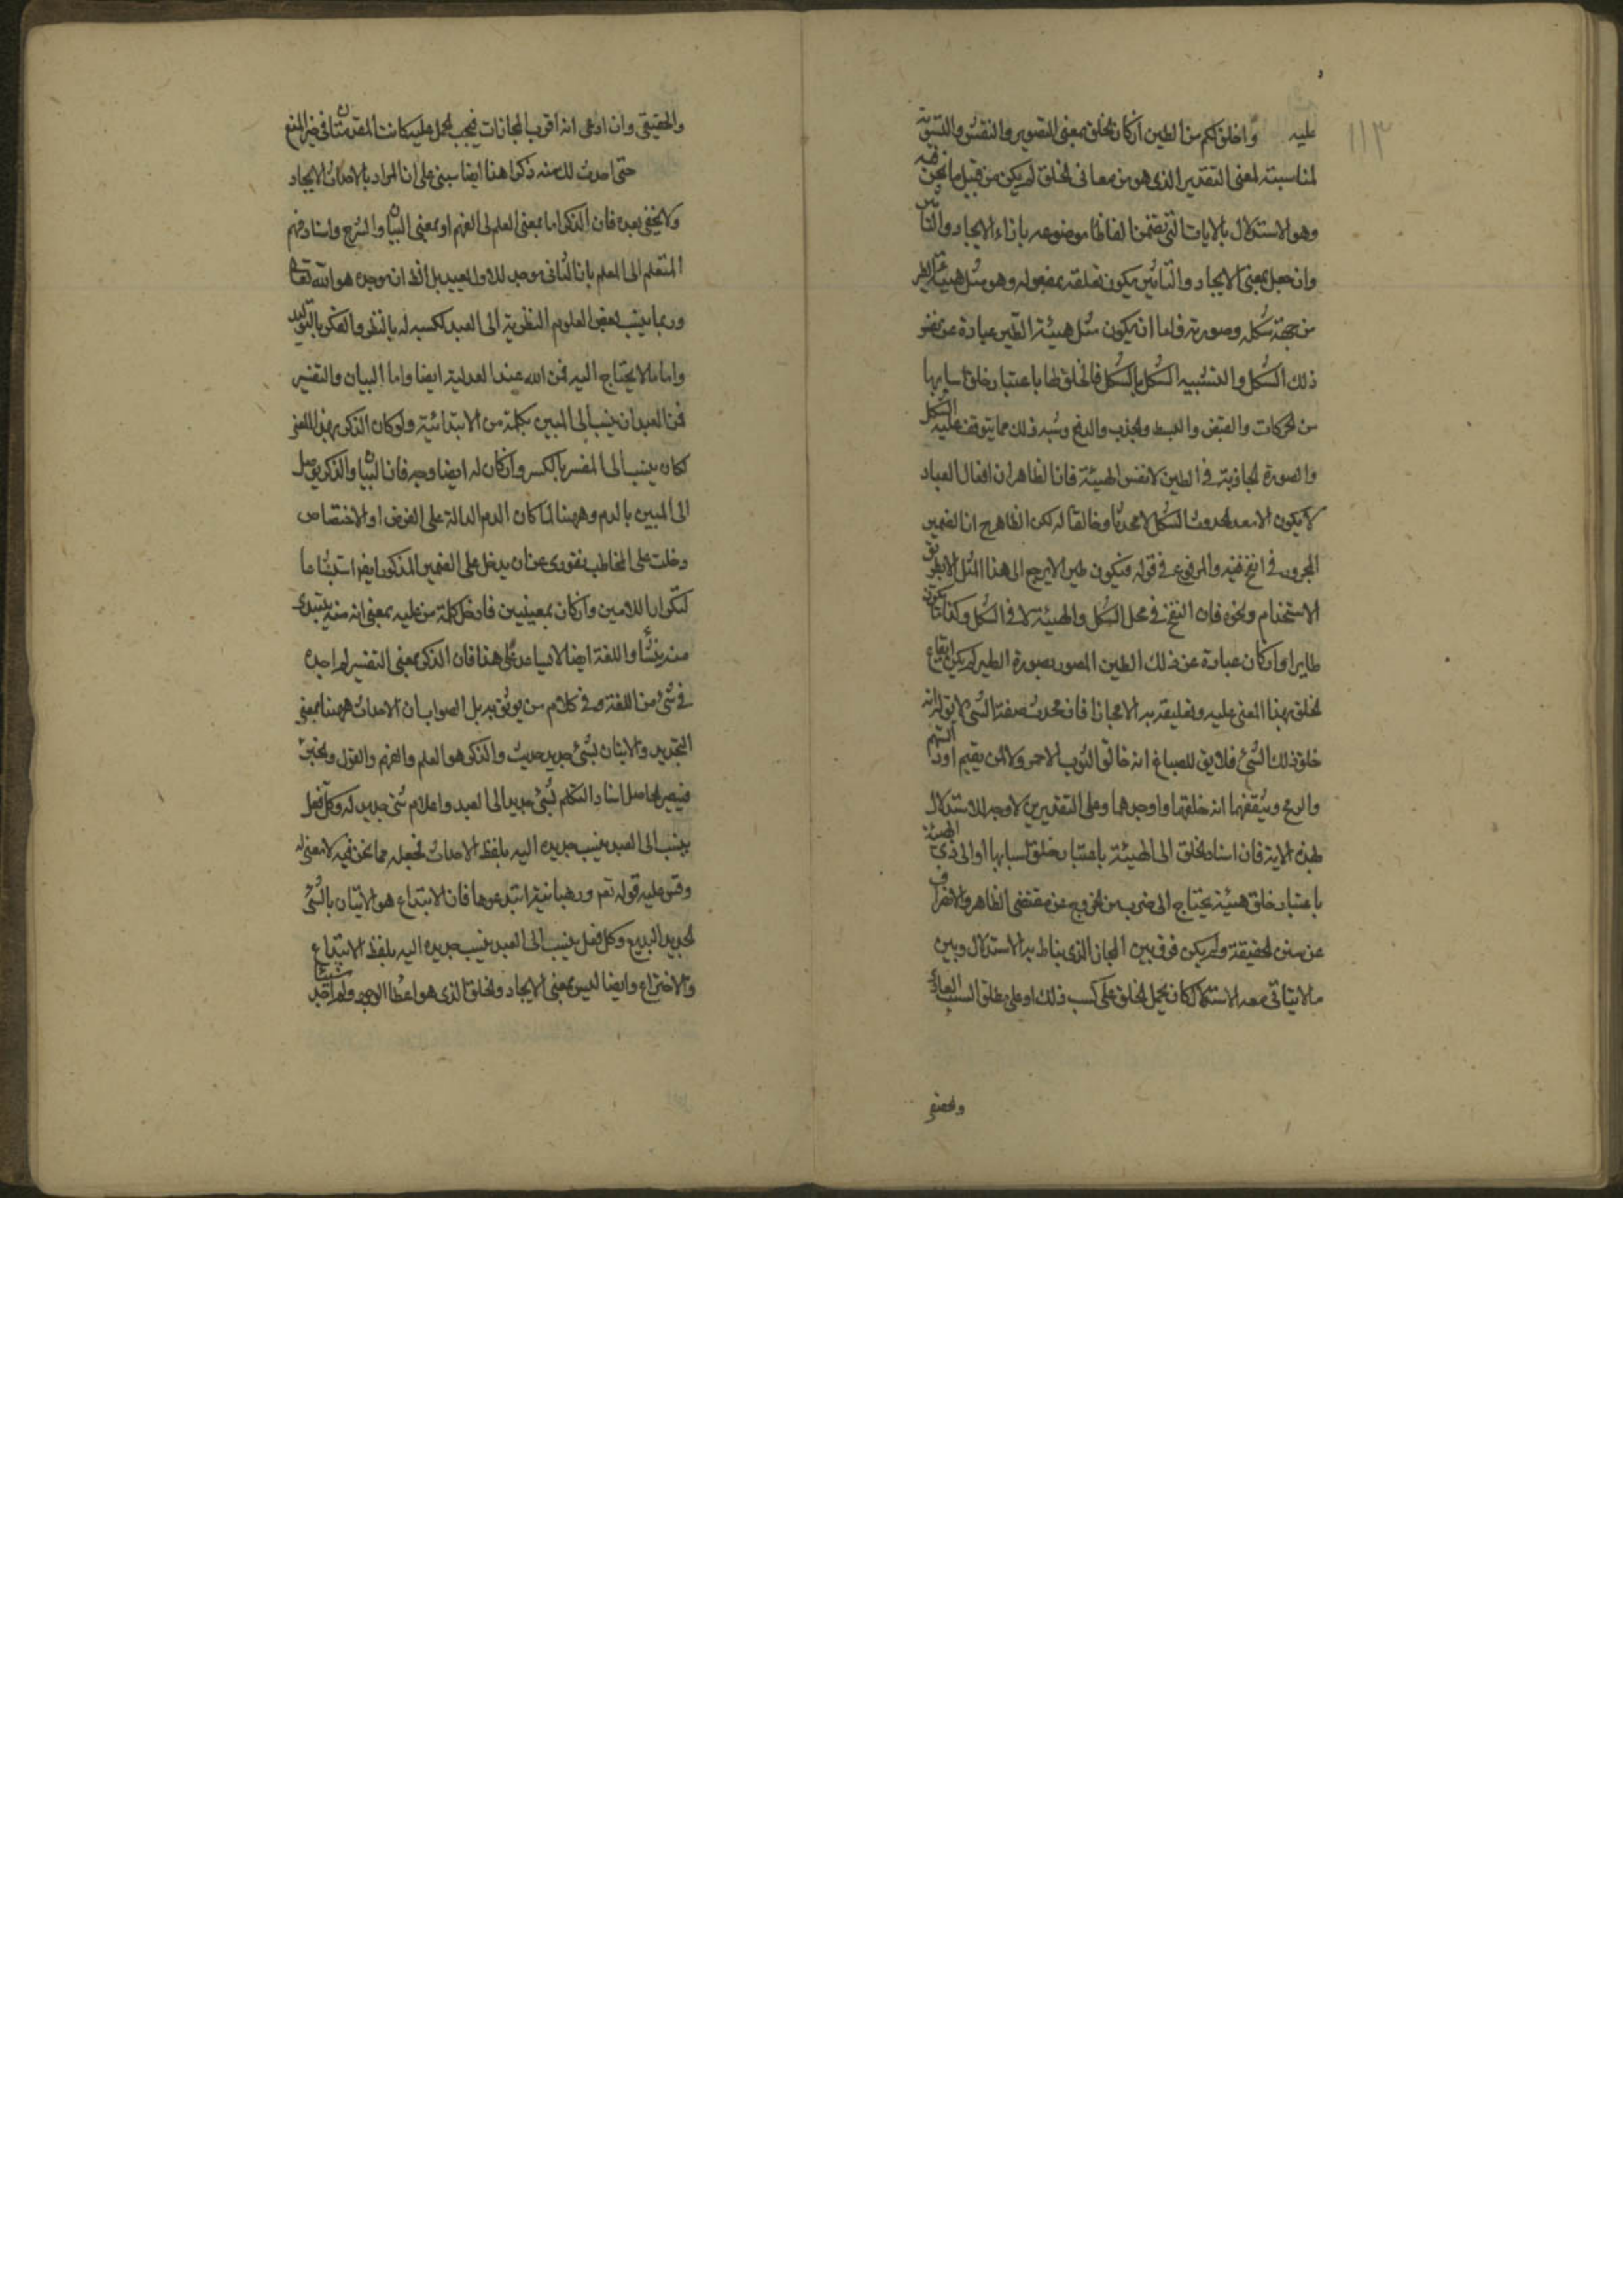 ١١٣
عليه واخلق لكم من الطين ان كان الخلق بمعنى التصوير والنقش والتسوية
لمناسبته لمعنى التقدير الذى هو من معانى الخلق لم يكن من قبيل ما نحن فيه
وهو الاستدلال بالايات التى تضمن الفاظا موضوعه بازاء الايجاد والتاثير
وان جعل بمعنى الايجاد والتاثير يكون تعلقه بمفعوله وهو مثل هيئة الطير
من جهة شكله وصورته فاما ان يكون مثل هيئة الطير عبارة عن نفس
ذلك الشكل والتشبيه الشكل بالشكل فالخلق لها باعتبار خلق اسبابها
من الحركات والقبض والبسط والجذب والدفع وشبه ذلك مما يتوقف عليه الشكل
والصورة الحادثة فى الطين لا نفس الهيئة فان الظاهر ان افعال العباد
لا يكون الا معد لحدوث الشكل لا محدثا وخالقا له لكن الظاهر ح ان الضمير
المجرور فى انفخ فيه والمرفوع فى قوله فيكون طيرا لا يرجع الى هذا المثل الا بطريق
الاستخدام ونحوه فان النفخ فى محل الشكل والهيئة لا فى الشكل وكذا يكون
طايرا وان كان عبارة عن ذلك الطين المصور بصورة الطير لم يكن ايقاع
الخلق بهذا المعنى عليه وتعليقه به الا مجازا فان محدث صفة الشىء لا يق له انه
خلق ذلك الشىء فلا يق للصباغ انه خالق الثوب الاحمر ولا لمن يقيم اود السهم
والرمح ويثقفهما انه خلقهما واوجدهما وعلى التقديرين لا وجه للاستدلال
بهذه الاية فان اسناد الخلق الى الهيئة باعتبار خلق اسبابها او الى ذى الهيئة
باعتبار خلق هيئة يحتاج الى ضرب من الخروج عن مقتضى الظاهر والانحراف
عن سنن الحقيقة ولم يكن فرق بين المجاز الذى يناط به الاستدلال وبين
ما لا يتاتى معه الاستدلال كان يحمل الخلق على كسب ذلك او على مطلق السبب العادى
والحقيقى
والحقيقى وان ادعى انه اقرب المجازات فيجب الحمل عليه كانت المقدمتان فى حيز المنع
حتى احدث لك منه ذكرا هذا ايضا مبنى على ان المراد بالاحداث الايجاد
ولا يخفى بعده فان الذكر اما بمعنى العلم الى الفهم او بمعنى البيان والشرح واسناد فهم
المتعلم الى المعلم بان الثانى موجد للاول بعيد بل الظ ان موجده هو الله تعالى
وربما ينسب بعض العلوم النظرية الى العبد لكسبه له بالنظر والفكر بالتوليد
واما ما لا يحتاج اليه فمن الله عند العدلية ايضا واما البيان والتفسير
فمن العبد ان ينسب الى المبين بكلمة من الابتدائية ولو كان الذكر بهذا المعنى
لكان ينسب الى المفسر بالكسر وان كان له ايضا وجه فان البيان والذكر يوصل
الى المبين باللام وههنا لما كان اللام الدالة على الغرض او الاختصاص
دخلت على المخاطب نفورى عن ان يدخل على الضمير المذكور ايضا استبشاعا
لتكرار اللامين وان كان بمعنيين فادخل كلمة من عليه بمعنى انه منه يبتدى
منه ينشأ واللغة ايضا لا تساعد على هذا فان الذكر بمعنى التفسير لم اجده
فى شىء من اللغة وفى كلام من يوثق به بل الصواب ان الاحداث ههنا بمعنى
التجديد والاتيان بشىء جديد حديث والذكر هو العلم والفهم والقول والخبر
فيصير الحاصل اسناد التكلم بشىء جديد الى العبد واعلام شىء جديد له وكل فعل
ينسب الى العبد ينسب جديده اليه بلفظ الاحداث فجعله مما نحن فيه لا معنى له
وقس عليه قوله تعم ورهبانية ابتدعوها فان الابتداع هو الاتيان بالشىء
الجديد البديع وكل فعل ينسب الى العبد ينسب جديده اليه بلفظ الابتداع
والاختراع وايضا ليس بمعنى الايجاد والخلق الذى هو اعطا الوجود ولم اجد شيئا